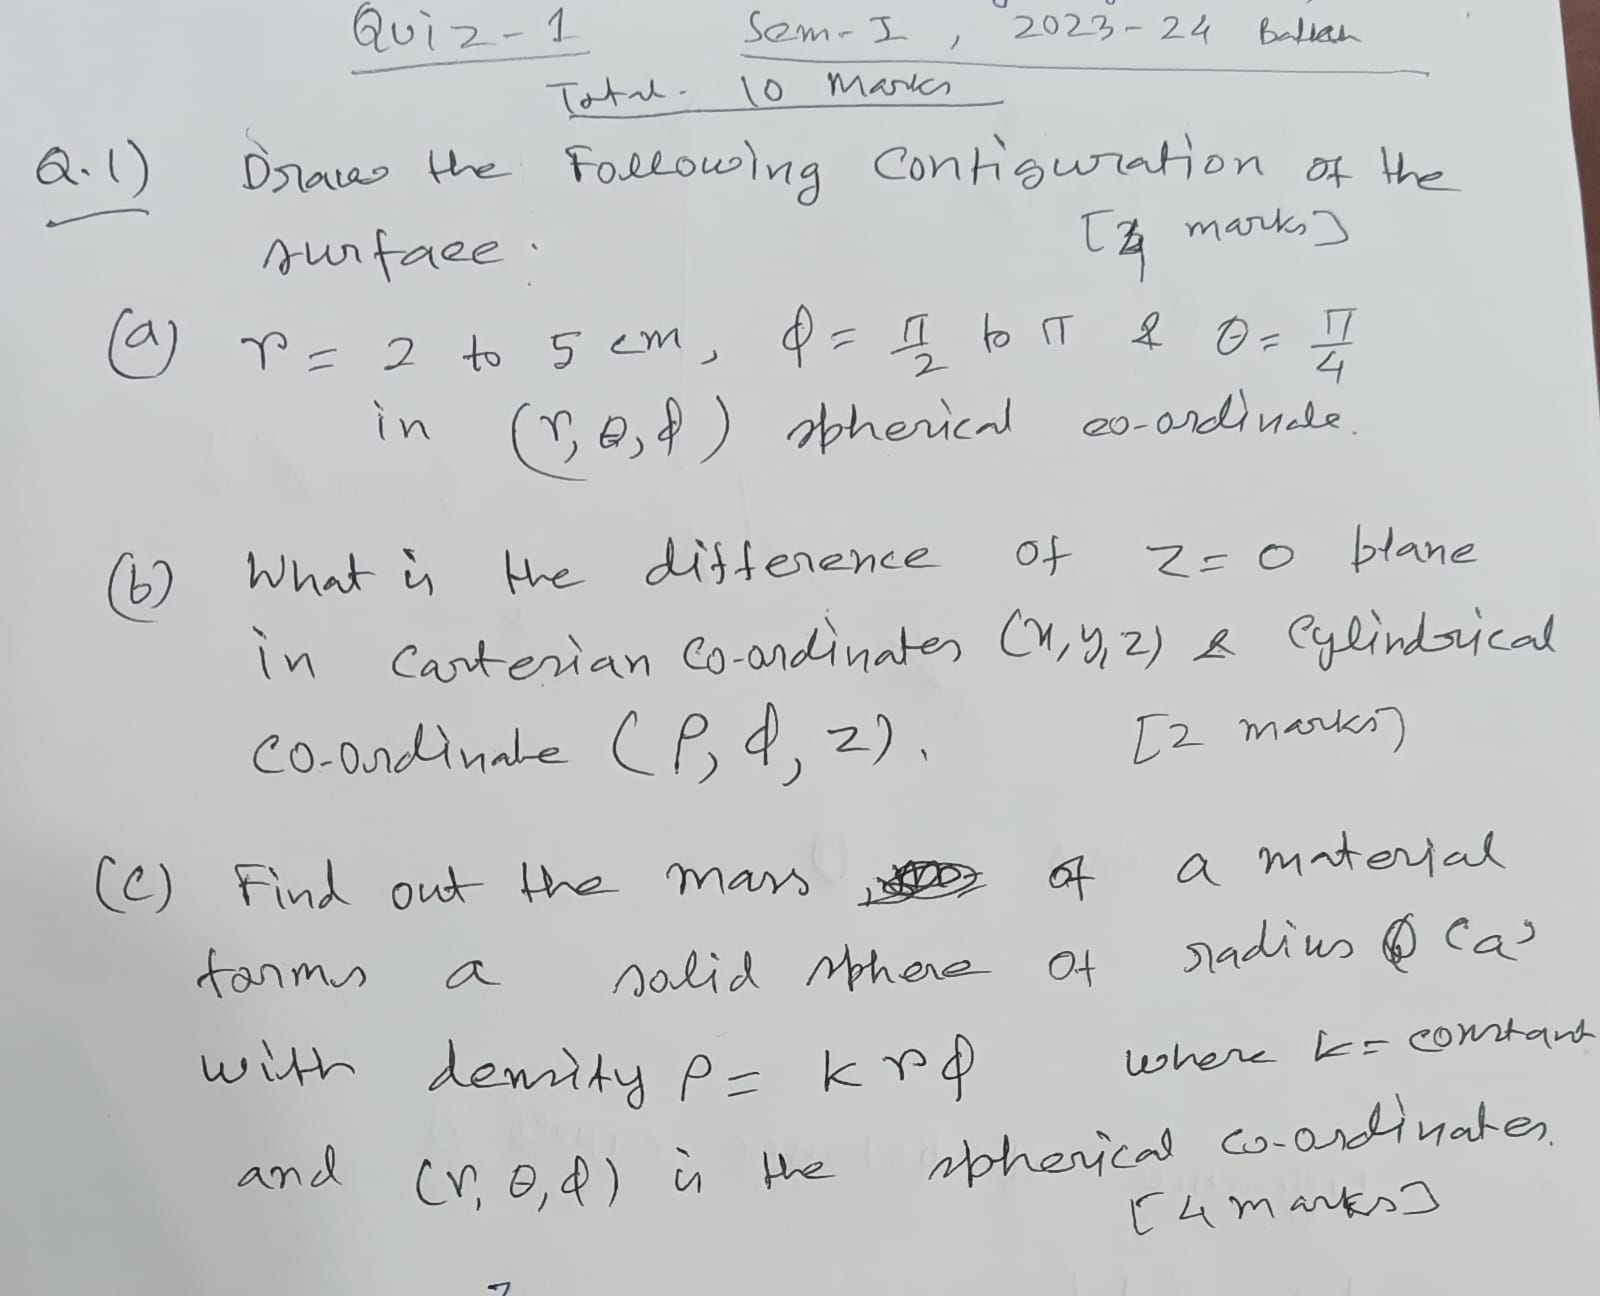 Quiz-1 Sem-I, 2023-24 Batch
Total. 10 Marks
Q.1) Draw the Following Configuration of the
surface. [4 marks]
(a) r = 2 to 5 cm, φ = π/2 to π & θ = π/4
in (r, θ, φ) spherical co-ordinate.
(b) What is the difference of z=0 plane
in Cartesian Co-ordinates (x, y, z) & Cylindrical
Co-ordinate (ρ, φ, z). [2 marks]
(c) Find out the mass of a material
forms a solid sphere of radius 'a'
with density ρ = k r φ where k = constant
and (r, θ, φ) is the spherical co-ordinates.
[4 marks]